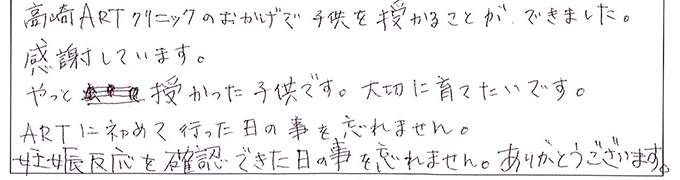 高崎ARTクリニックのおかげで子供を授かることができました。
感謝しています。
やっと授かった子供です。大切に育てたいです。
ARTに初めて行った日の事を忘れません。
妊娠反応を確認できた日の事を忘れません。ありがとうございます。